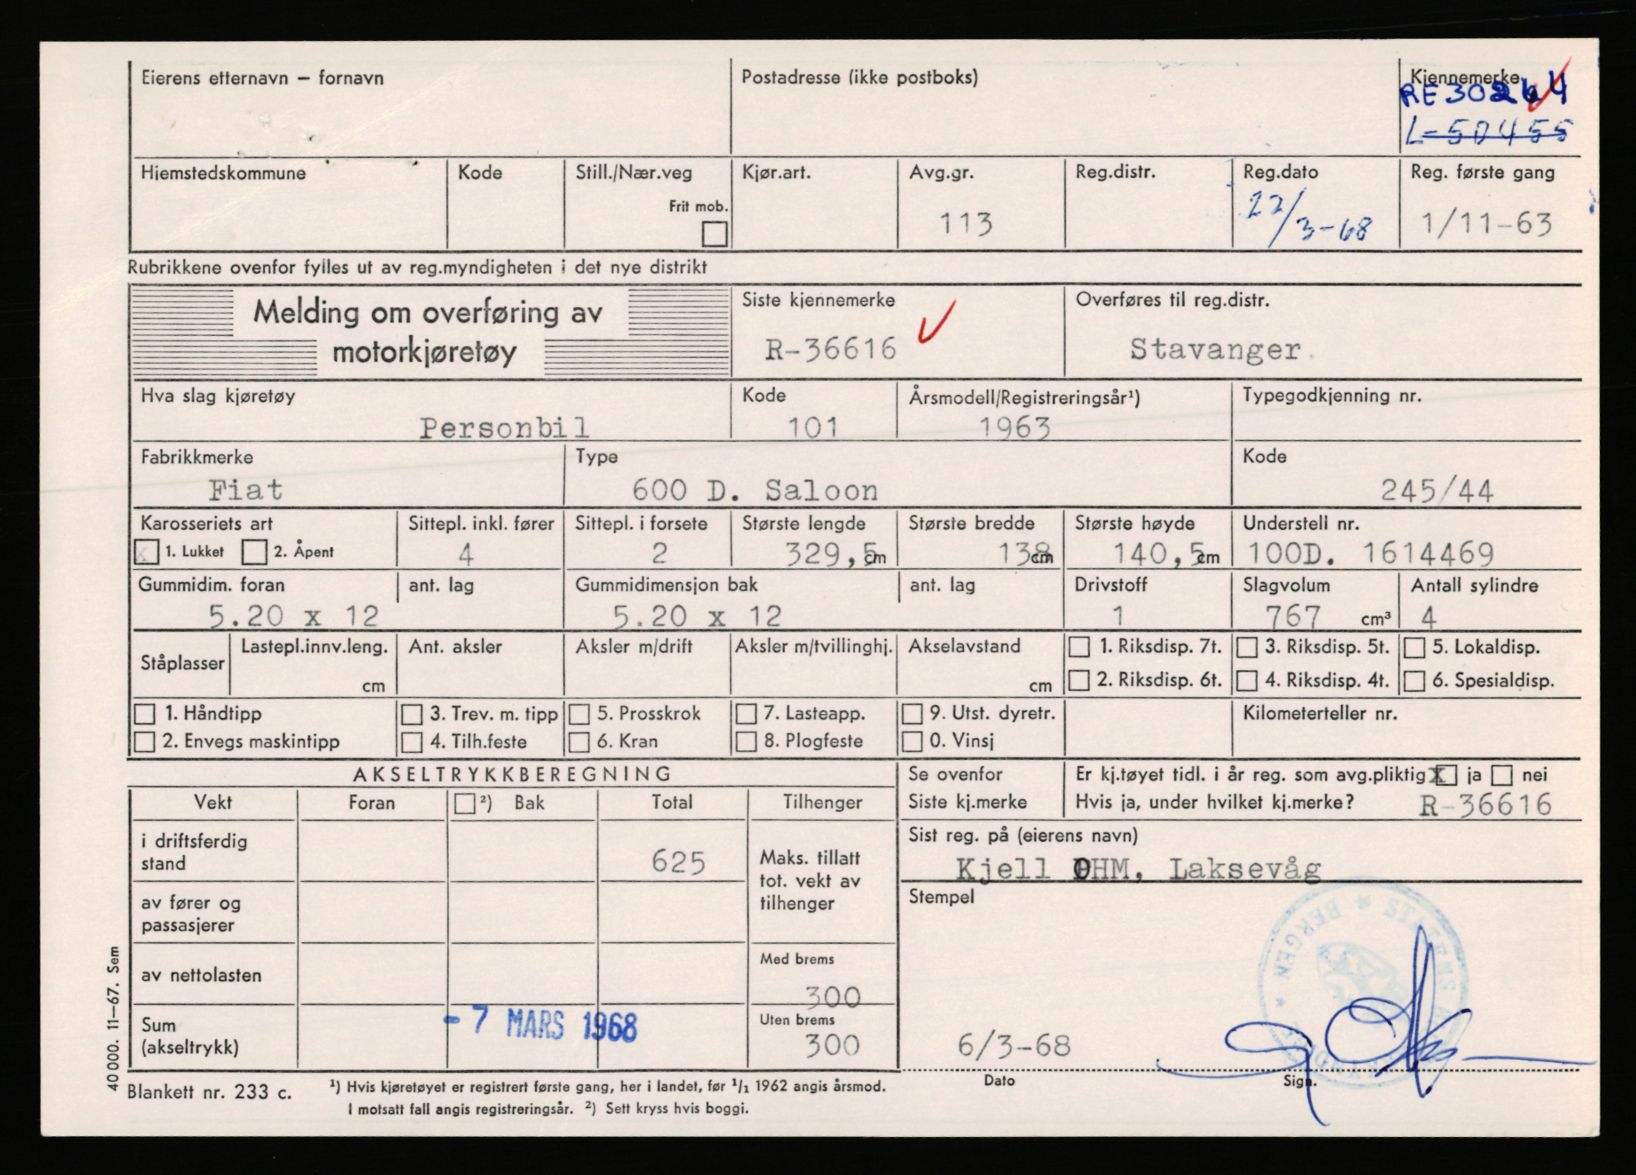 Eierens etternavn — fornavn
Postadresse (ikke postboks)
Kjennemerke
RE30264
L-50455
Hjemstedskommune
Kode
Still./Nær.veg
Frit mob.
Kjør.art.
Avg.gr.
113
Reg.distr.
Reg.dato
22/3-68
Reg. første gang
1/11-63
Rubrikkene ovenfor fylles ut av reg.myndigheten i det nye distrikt
Melding om overføring av
motorkjøretøy
Siste kjennemerke
R-36616
Overføres til reg.distr.
Stavanger.
Hva slag kjøretøy
Personbil
Kode
101
Årsmodell/Registreringsår¹)
1963
Typegodkjenning nr.
Fabrikkmerke
Fiat
Type
600 D. Saloon
Kode
245/44
Karosseriets art
x 1. Lukket 2. Åpent
Sittepl. inkl. fører
4
Sittepl. i forsete
2
Største lengde
329,5 cm
Største bredde
138 cm
Største høyde
140,5 cm
Understell nr.
100D. 1614469
Gummidim. foran
5.20 x 12
ant. lag
Gummidimensjon bak
5.20 x 12
ant. lag
Drivstoff
1
Slagvolum
767 cm³
Antall sylindre
4
Ståplasser
Lastepl.innv.leng.
cm
Ant. aksler
Aksler m/drift
Aksler m/tvillinghj.
Akselavstand
cm
1. Riksdisp. 7t.
2. Riksdisp. 6t.
3. Riksdisp. 5t.
4. Riksdisp. 4t.
5. Lokaldisp.
6. Spesialdisp.
1. Håndtipp
2. Envegs maskintipp
3. Trev. m. tipp
4. Tilh.feste
5. Prosskrok
6. Kran
7. Lasteapp.
8. Plogfeste
9. Utst. dyretr.
0. Vinsj
Kilometerteller nr.
AKSELTRYKKBEREGNING
Vekt
Foran
²) Bak
Total
Tilhenger
i driftsferdig
stand
625
Maks. tillatt
tot. vekt av
tilhenger
av fører og
passasjerer
av nettolasten
Med brems
300
Sum
(akseltrykk)
-7 MARS 1968
Uten brems
300
Se ovenfor
Siste kj.merke
Er kj.tøyet tidl. i år reg. som avg.pliktig x ja nei
Hvis ja, under hvilket kj.merke? R-36616
Sist reg. på (eierens navn)
Kjell OHM, Laksevåg
Stempel
STATENS
BERGEN
6/3-68
Dato
Sign.
40 000. 11—67. Sem
Blankett nr. 233 c.
¹) Hvis kjøretøyet er registrert første gang, her i landet, før 1/1 1962 angis årsmod.
I motsatt fall angis registreringsår. ²) Sett kryss hvis boggi.